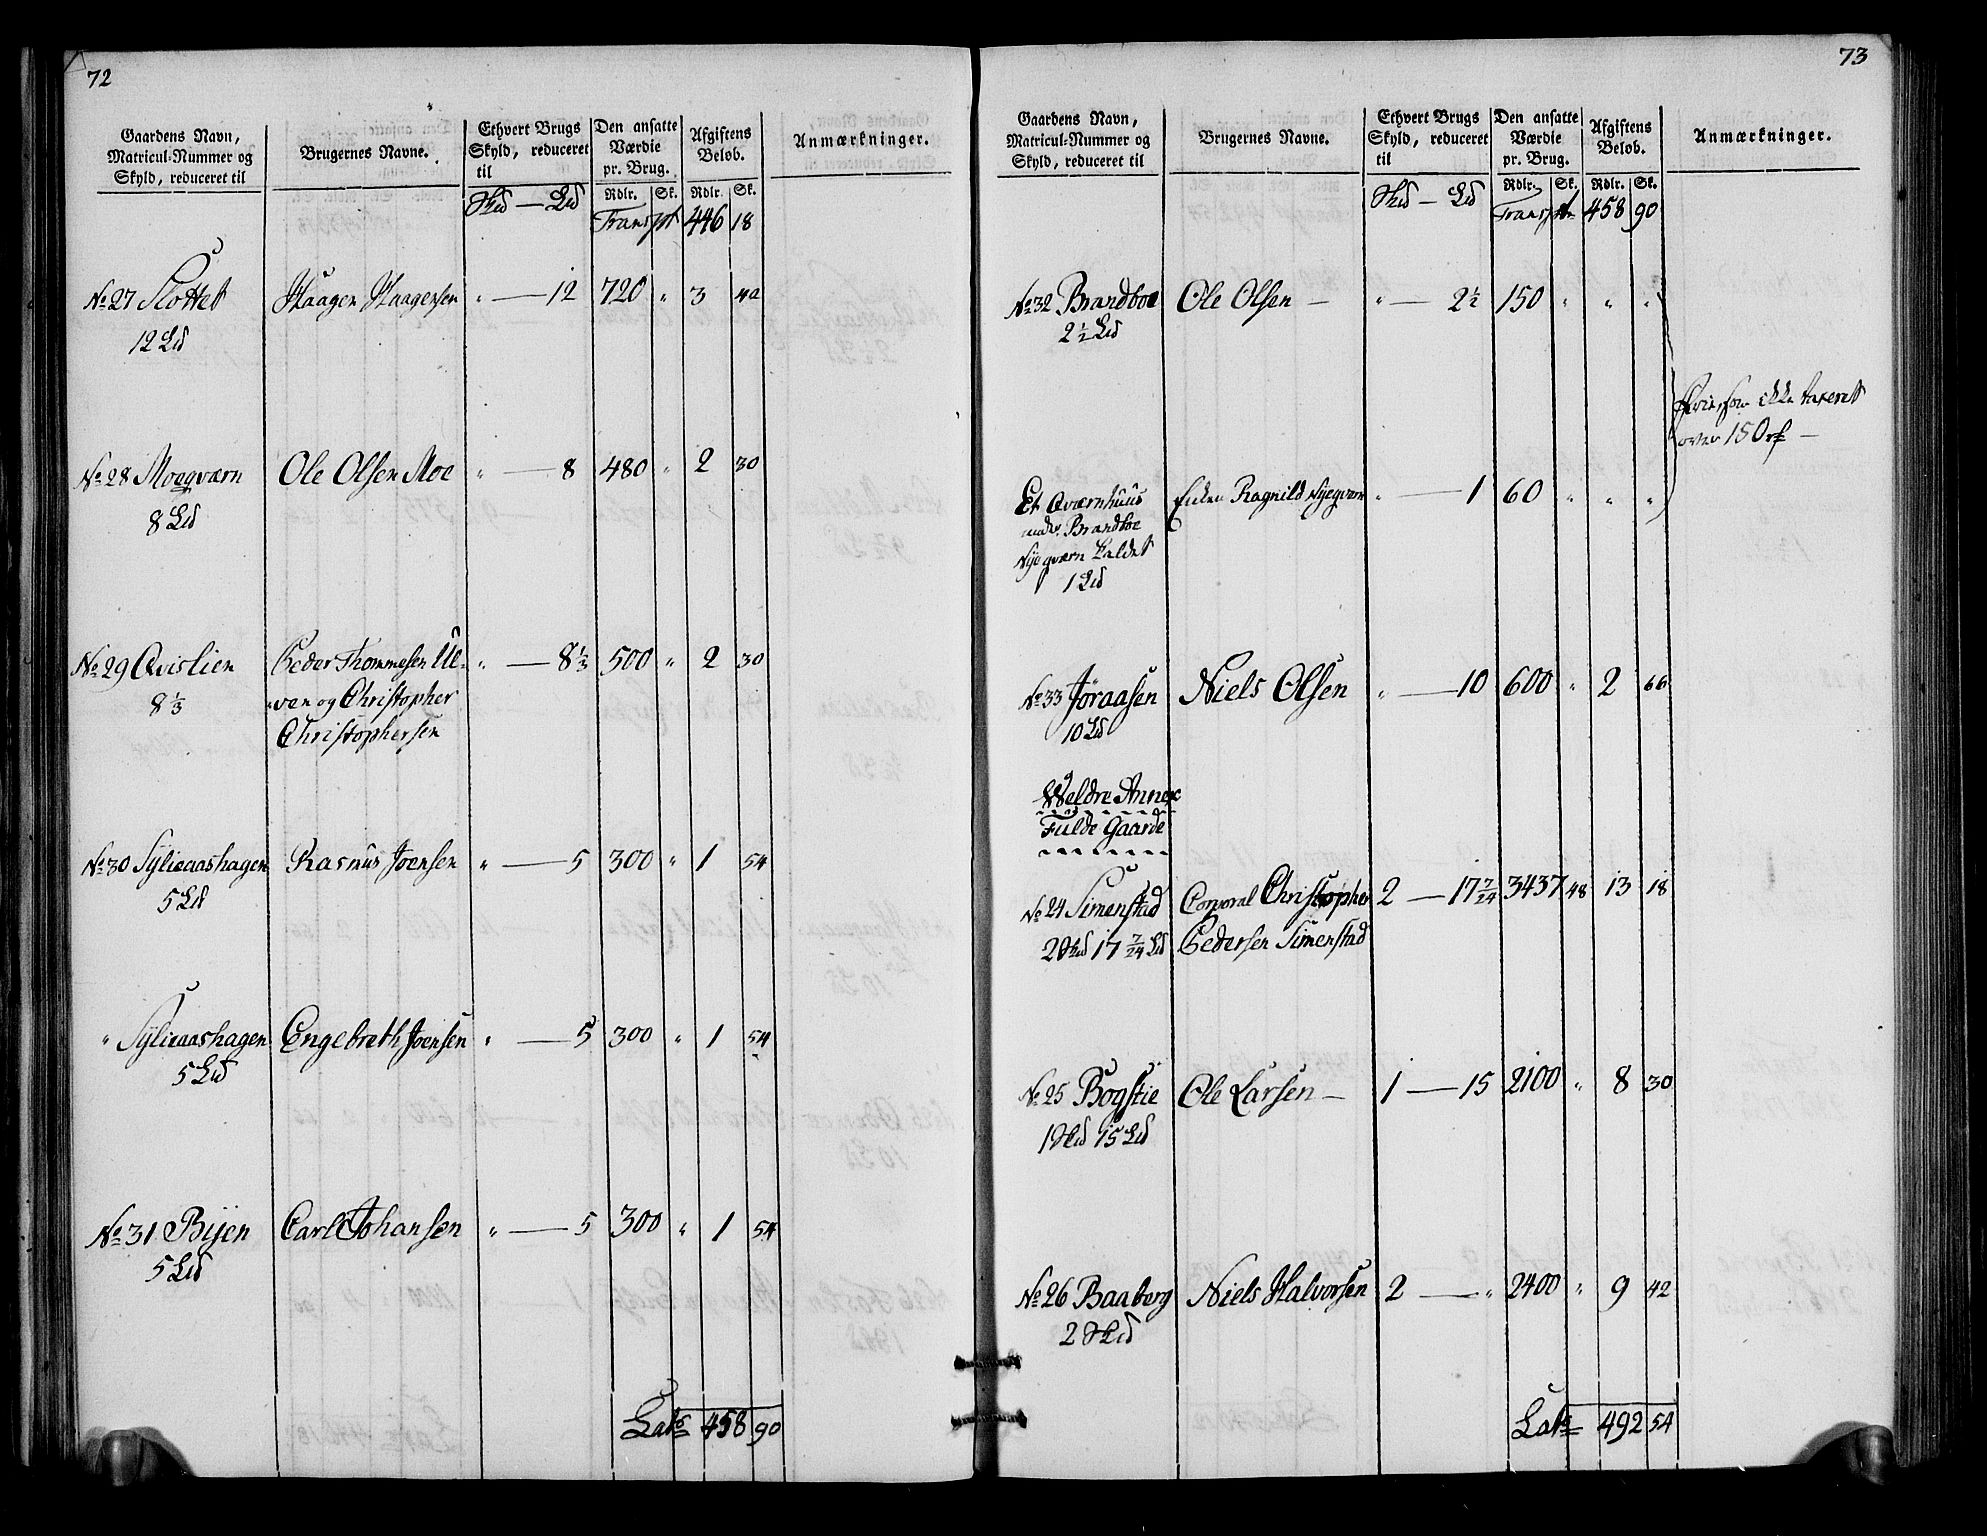 72
Gaardens Navn, Matricul-Nummer og Skyld, reduceret til
Brugernes Navne.
Ethvert Brugs Skyld, reduceret til
Den ansatte Værdie pr. Brug.
Afgiftens Beløb.
Anmærkninger.
Rdlr. Sk. Rdlr. Sk.
Skd — Ld Transpt 446 18
No 27 Slottet Haagen Haagensen " — 12 720 " 3 42
12 Ld
No 28 Moeqværn Ole Olsen Moe " — 8 480 " 2 30
8 Ld
No 29 Qvislien Peder Thommesen Ul- " — 8 1/3 500 " 2 30
8 1/3 ven og Christopher
Christophersen
No 30 Sylieaashagen Rasmus Joensen " — 5 300 " 1 54
5 Ld
" Sylieaashagen Engebreth Joensen " — 5 300 " 1 54
5 Ld
No 31 Bijen Carl Johansen " — 5 300 " 1 54
5 Ld
Lats 458 90
73
Gaardens Navn, Matricul-Nummer og Skyld, reduceret til
Brugernes Navne.
Ethvert Brugs Skyld, reduceret til
Den ansatte Værdie pr. Brug.
Afgiftens Beløb.
Anmærkninger.
Rdlr. Sk. Rdlr. Sk.
Skd — Ld Transpt 458 90
No 32 Brandboe Ole Olsen — " — 2 1/2 150 " " "
2 1/2 Ld
ikke taxeret
over 150 rd —
Et Qværnhuus Enken Ragnild Nyeqværn " — 1 60 " " "
under Brandboe
Nyeqværn kaldet
1 Ld
No 33 Jøraasen Niels Olsen " — 10 600 " 2 66
10 Ld
Weldre Annex
Fulde Gaarde
No 24 Simenstad Corporal Christopher 2 — 17 7/24 3437 48 13 18
2 Skd 17 7/24 Ld Pedersen Simenstad
No 25 Bogstie Ole Larsen — 1 — 15 2100 " 8 30
1 Skd 15 Ld
No 26 Baaberg Niels Halvorsen 2 — " 2400 " 9 42
2 Skd
Lats 492 54